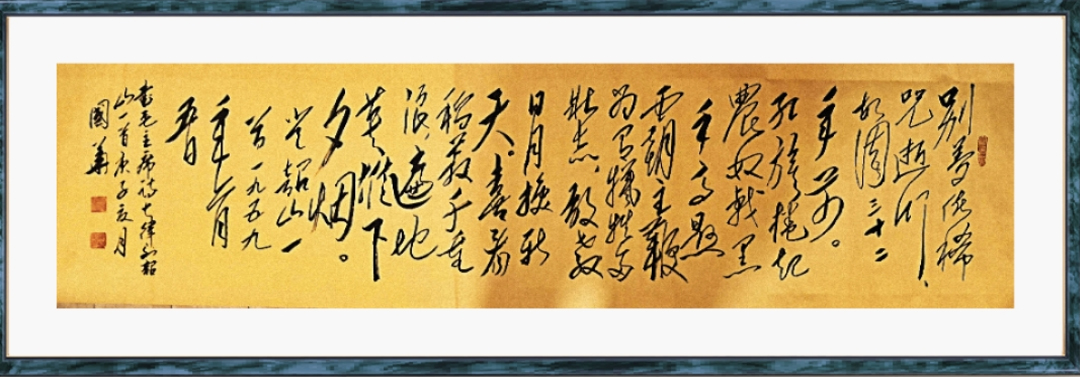 别梦依稀
咒逝川、
故園三十二
年前。
红旗捲起
農奴戟黑
手高懸
霸主鞭
为有犧牲多
壮志、敢教
日月换新
天。喜看
稻菽千重
浪、遍地
英雄下
夕烟。
韶山一
首一九五九
年六月
日
書毛主席诗七律到韶
山一首庚子夏月
國華